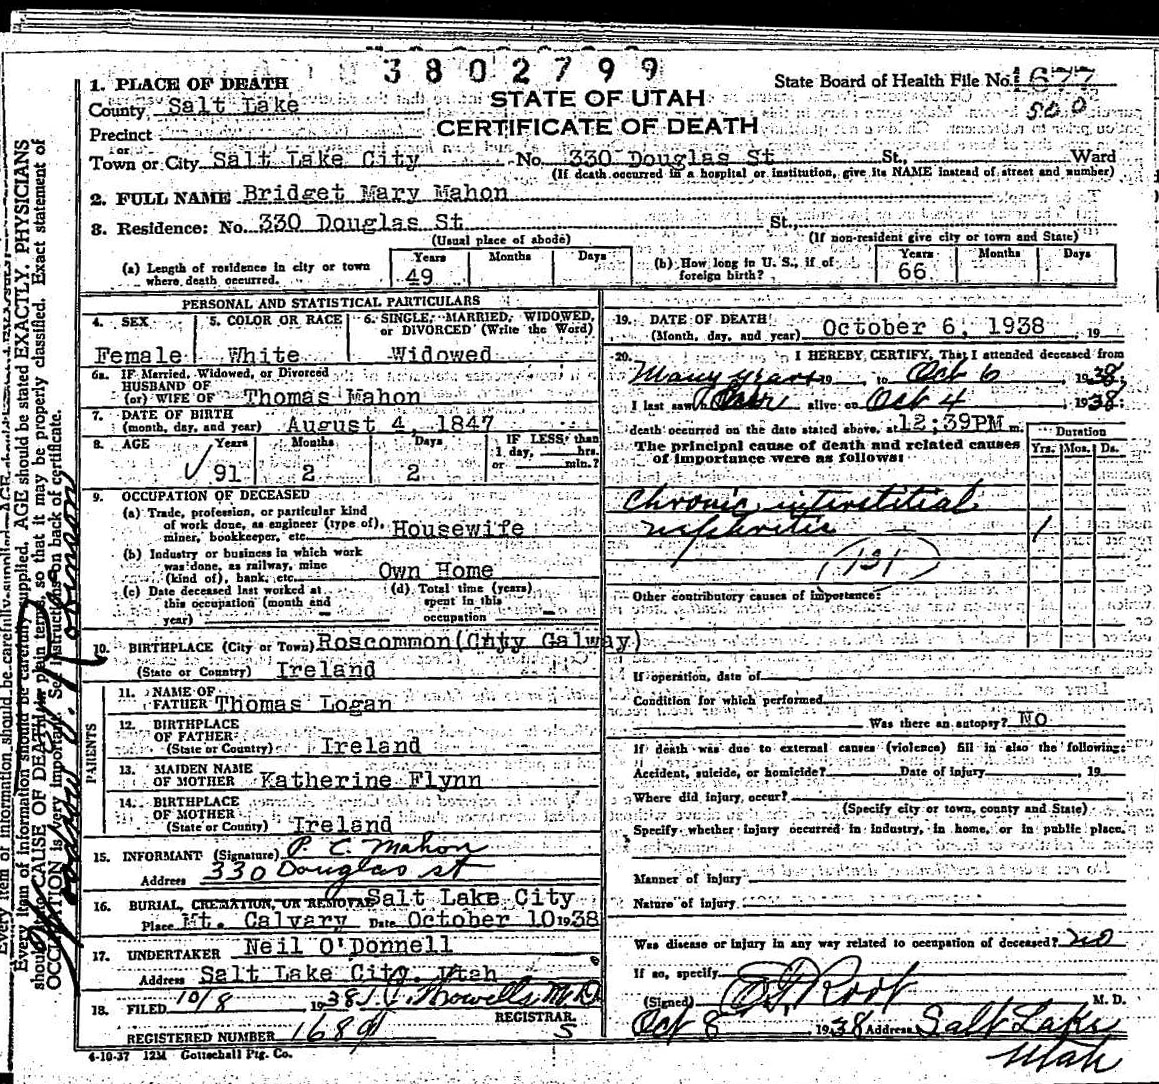 3802799
1. PLACE OF DEATH
State Board of Health File No. 1677
County Salt Lake
STATE OF UTAH
500
Precinct
CERTIFICATE OF DEATH
or
Town or City Salt Lake City No. 330 Douglas St St., Ward
(If death occurred in a hospital or institution, give its NAME instead of street and number)
2. FULL NAME Bridget Mary Mahon
3. Residence: No. 330 Douglas St St.,
(Usual place of abode) (If non-resident give city or town and State)
(a) Length of residence in city or town where death occurred. Years 49 Months Days
(b) How long in U. S., if of foreign birth? Years 66 Months Days
PERSONAL AND STATISTICAL PARTICULARS
4. SEX Female
5. COLOR OR RACE White
6. SINGLE, MARRIED, WIDOWED, or DIVORCED (Write the Word) Widowed
6a. IF Married, Widowed, or Divorced
HUSBAND OF
(or) WIFE OF Thomas Mahon
7. DATE OF BIRTH
(month, day, and year) August 4, 1847
8. AGE Years 91 Months 2 Days 2 IF LESS than 1 day, hrs. or min.?
9. OCCUPATION OF DECEASED
(a) Trade, profession, or particular kind
of work done, as engineer (type of),
miner, bookkeeper, etc. Housewife
(b) Industry or business in which work
was done, as railway, mine
(kind of), bank, etc. Own Home
(c) Date deceased last worked at
this occupation (month and
year)
(d) Total time (years)
spent in this
occupation
10. BIRTHPLACE (City or Town) Roscommon (Cnty Galway)
(State or Country) Ireland
PARENTS
11. NAME OF
FATHER Thomas Logan
12. BIRTHPLACE
OF FATHER
(State or Country) Ireland
13. MAIDEN NAME
OF MOTHER Katherine Flynn
14. BIRTHPLACE
OF MOTHER
(State or Country) Ireland
15. INFORMANT (Signature) P. C. Mahon
Address 330 Douglas st
16. BURIAL, CREMATION, OR REMOVAL Salt Lake City
Place Mt. Calvary Date October 10 1938
17. UNDERTAKER Neil O'Donnell
Address Salt Lake City, Utah
18. FILED 10/8 1938 M.D.
REGISTRAR.
REGISTERED NUMBER 1689 S
4-10-37 12M Gottschall Ptg. Co.
19. DATE OF DEATH
(Month, day, and year) October 6, 1938, 19
20. I HEREBY CERTIFY, That I attended deceased from
Many years 19 , to Oct 6, 1938,
I last saw her alive on Oct 4 1938;
death occurred on the date stated above, at 12:39PM m.
The principal cause of death and related causes
of importance were as follows:
Duration
Yrs. Mos. Ds.
Chronic interstitial
nephritis 1
(131)
Other contributory causes of importance:
If operation, date of
Condition for which performed
Was there an autopsy? No
If death was due to external causes (violence) fill in also the following:
Accident, suicide, or homicide? Date of injury , 19
Where did injury occur?
(Specify city or town, county and State)
Specify whether injury occurred in industry, in home, or in public place.
Manner of injury
Nature of injury
Was disease or injury in any way related to occupation of deceased? no
If so, specify
(Signed) Root M. D.
Oct 8 1938 Address Salt Lake
Utah
Every item of information should be carefully supplied. AGE should be stated EXACTLY. PHYSICIANS
should state CAUSE OF DEATH in plain terms, so that it may be properly classified. Exact statement of
OCCUPATION is very important. See instructions on back of certificate.